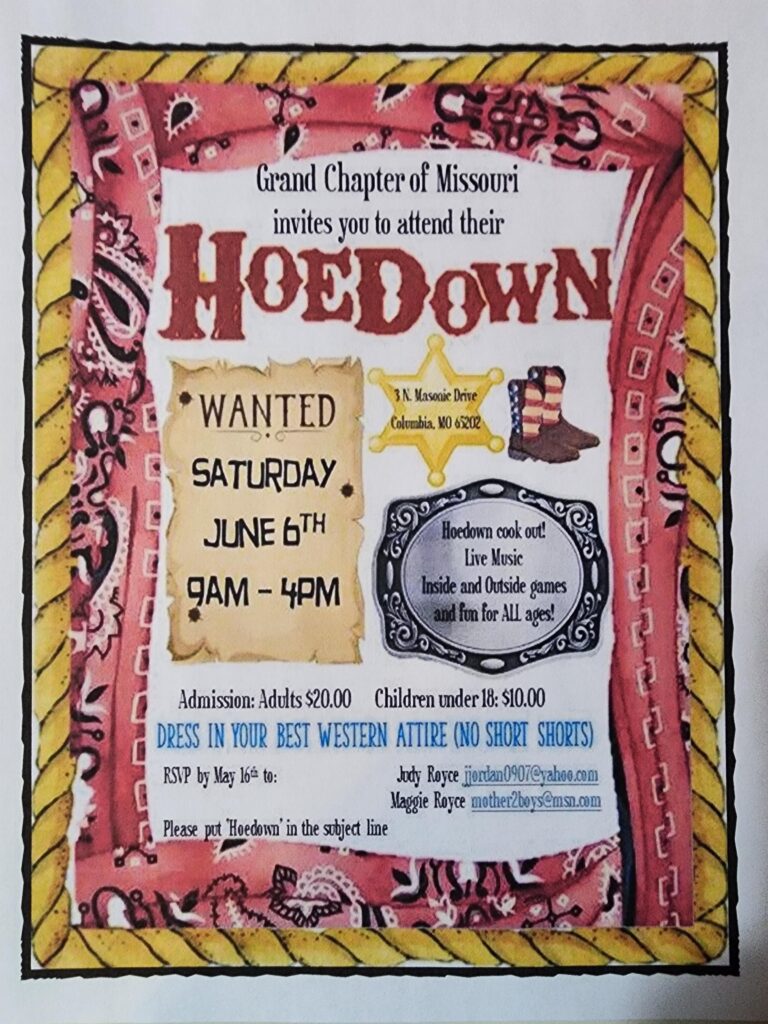 Grand Chapter of Missouri
invites you to attend their
HOEDOWN
WANTED
SATURDAY
JUNE 6TH
9AM - 4PM
3 N. Masonic Drive
Columbia, MO 65202
Hoedown cook out!
Live Music
Inside and Outside games
and fun for ALL ages!
Admission: Adults $20.00 Children under 18: $10.00
DRESS IN YOUR BEST WESTERN ATTIRE (NO SHORT SHORTS)
RSVP by May 16th to: Judy Royce jjordan0907@yahoo.com
Maggie Royce mother2boys@msn.com
Please put 'Hoedown' in the subject line